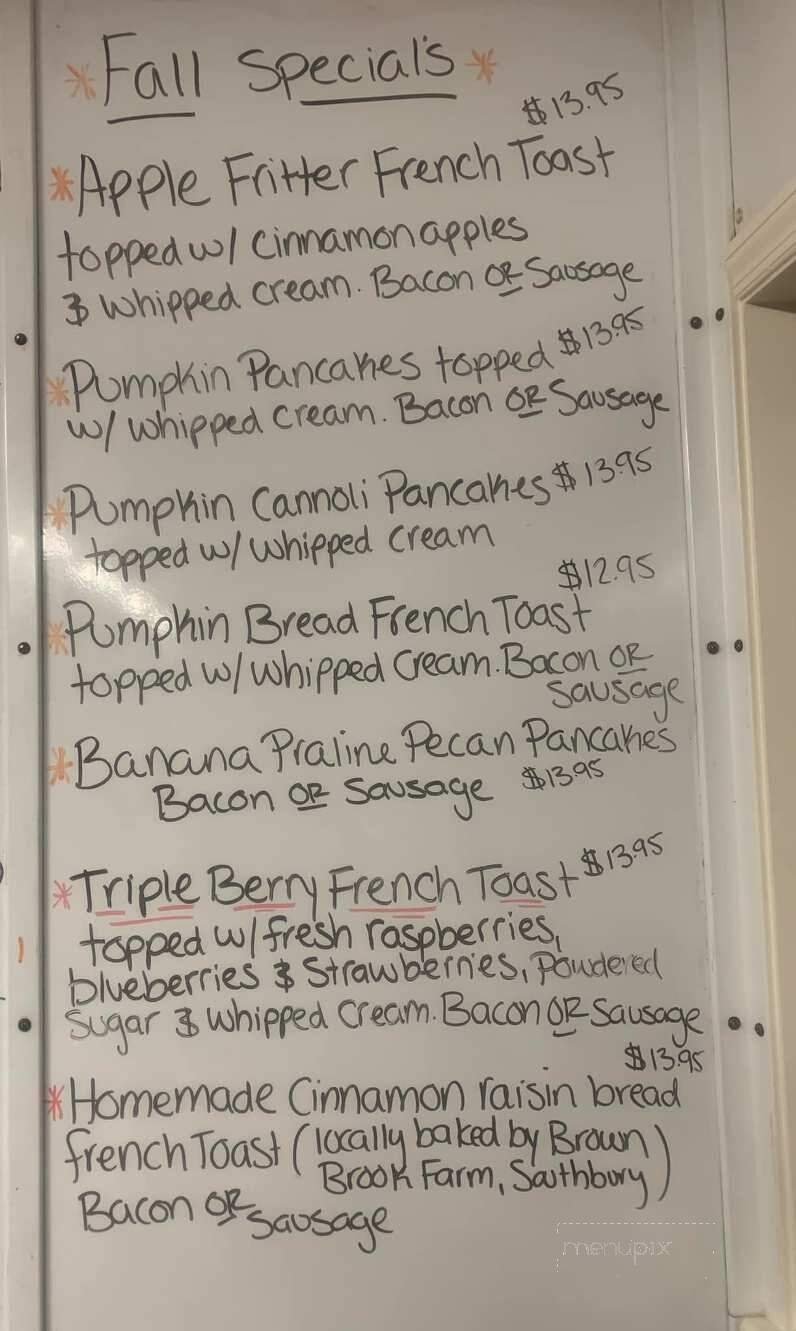 *Fall Special's*
$13.95
*Apple Fritter French Toast
topped w/ cinnamon apples
& whipped cream. Bacon OR Sausage
*Pumpkin Pancakes topped $13.95
w/ whipped cream. Bacon OR Sausage
*Pumpkin Cannoli Pancakes $13.95
topped w/ whipped cream
$12.95
*Pumpkin Bread French Toast
topped w/ whipped cream. Bacon OR
sausage
*Banana Praline Pecan Pancakes
Bacon OR Sausage $13.95
*Triple Berry French Toast $13.95
topped w/ fresh raspberries,
blueberries & Strawberries, Powdered
Sugar & whipped cream. Bacon OR sausage
$13.95
*Homemade Cinnamon raisin bread
french Toast (locally baked by Brown
Brook Farm, Southbury)
Bacon OR sausage
menupix